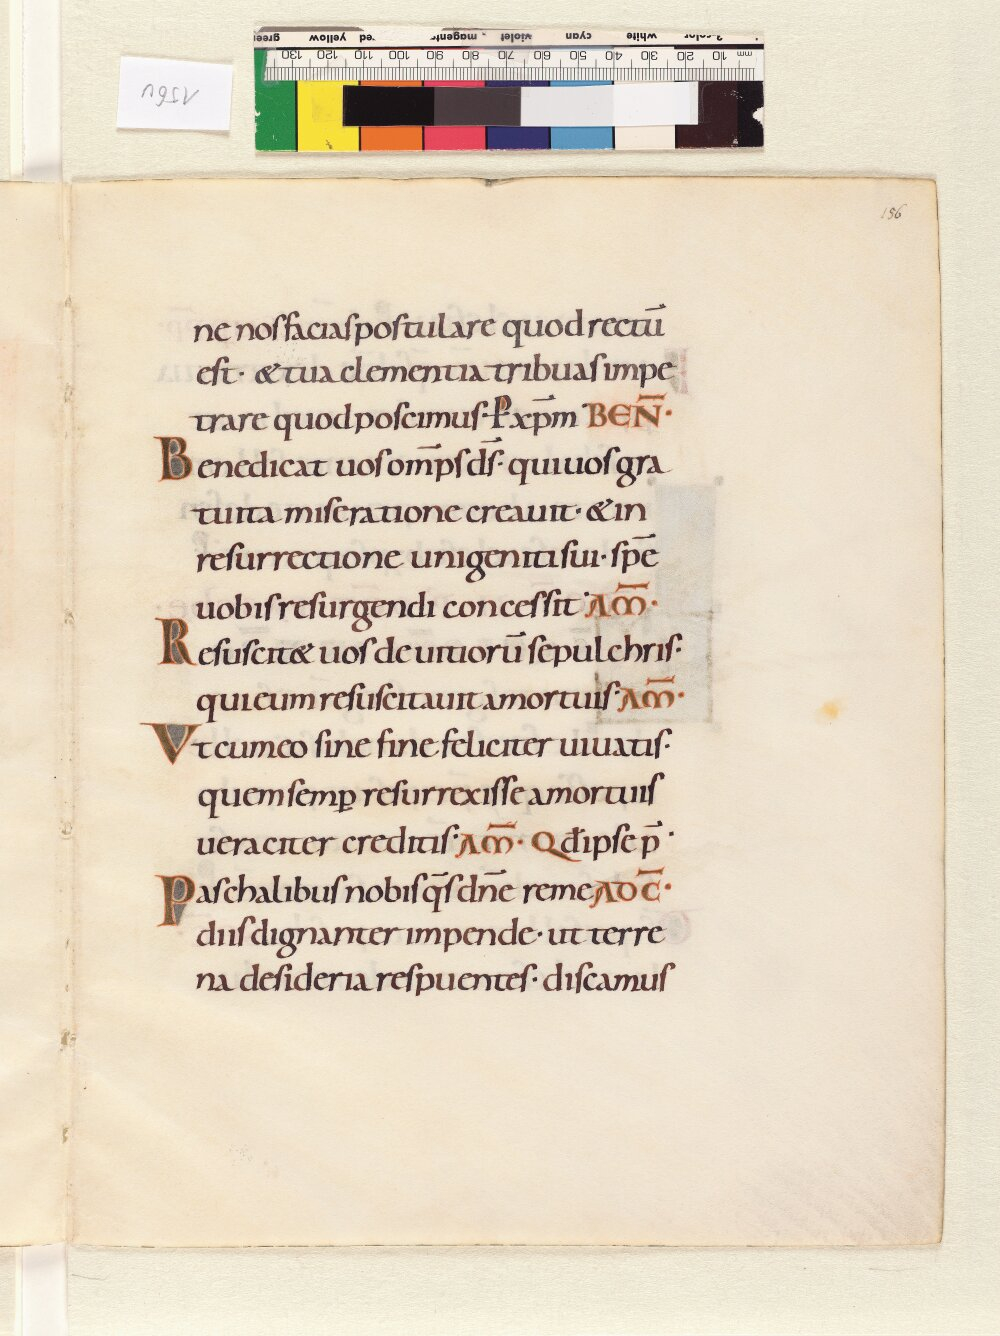 156
ne nos facias postulare quod rectū
est· & tua clementia tribuas impe
trare quod poscimus· P xp̄m BEN̄·
Benedicat uos om̄ps ds̄· qui uos gra
tuita miseratione creauit· & in
resurrectione unigeniti sui· spē
uobis resurgendi concessit· AM̄·
Resuscit& uos de uitiorū sepulchris·
qui eum resuscitauit a mortuis· AM̄·
Vt cum eo sine fine feliciter uiuatis·
quem semꝑ resurrexisse a mortuis
ueraciter creditis· AM̄· Qđ ipse p̄·
Paschalibus nobis q̄s dn̄e reme AD C̄·
diis dignanter impende· ut terre
na desideria respuentes· discamus
156v
mm 10 20 30 40 50 60 70 80 90 100 110 120 130
3-color white cyan violet magenta red yellow green